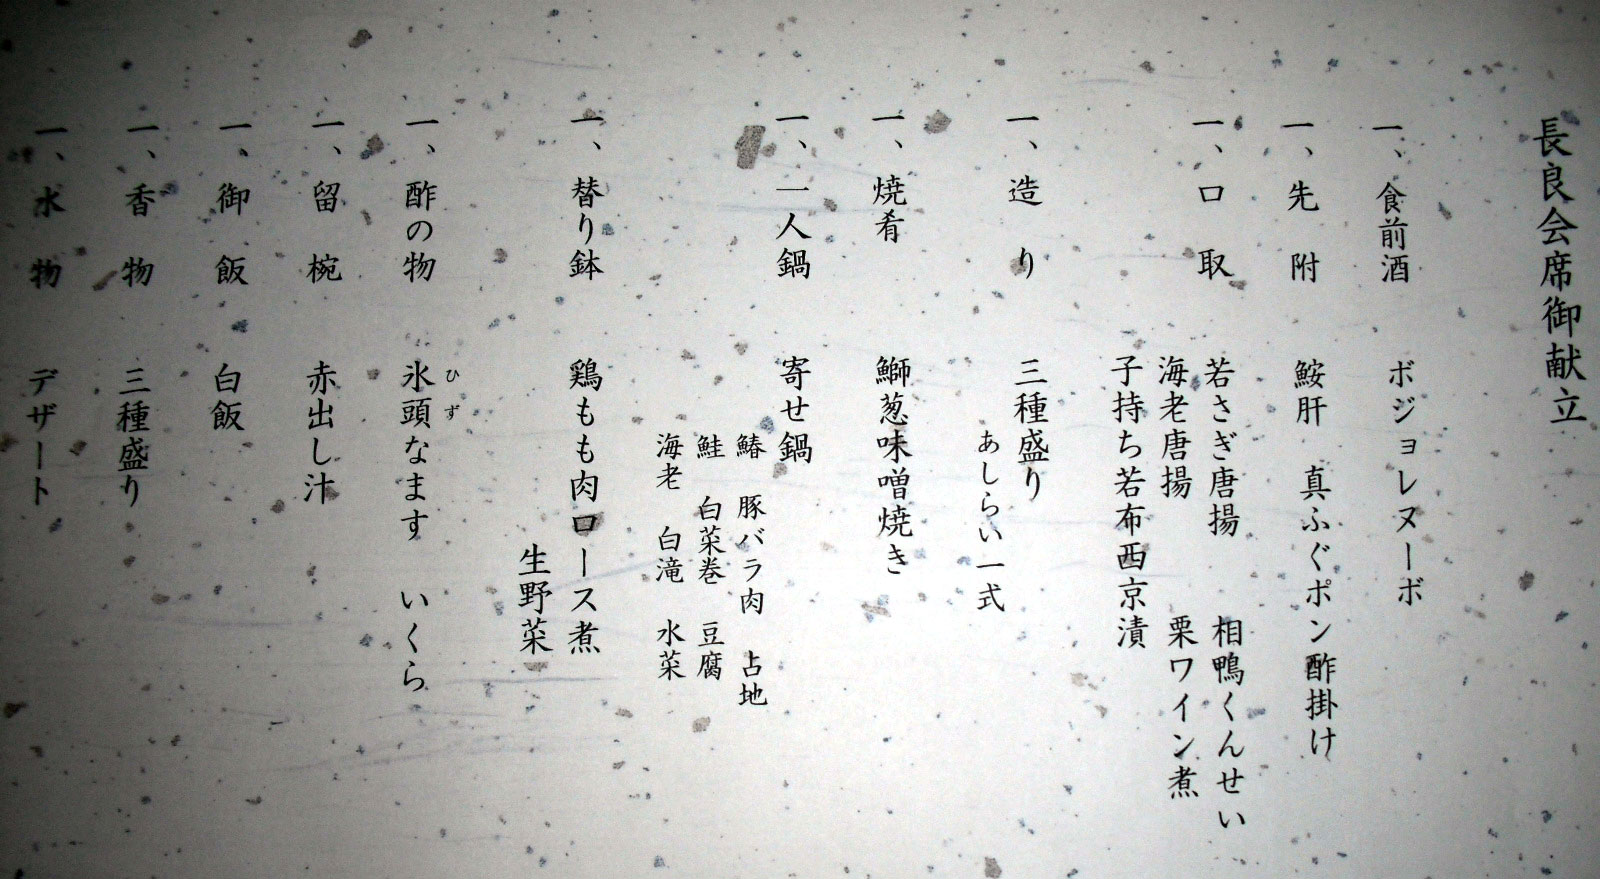 長良会席御献立
一、食前酒　ボジョレヌーボ
一、先附　鮟肝　真ふぐポン酢掛け
一、口取　若さぎ唐揚　相鴨くんせい
海老唐揚　栗ワイン煮
子持ち若布西京漬
一、造り　三種盛り
あしらい一式
一、焼肴　鰤葱味噌焼き
一、一人鍋　寄せ鍋
鰆　豚バラ肉　占地
鮭　白菜巻　豆腐
海老　白滝　水菜
一、替り鉢　鶏もも肉ロース煮
生野菜
一、酢の物　氷頭なます　いくら
ひず
一、留椀　赤出し汁
一、御飯　白飯
一、香物　三種盛り
一、水物　デザート